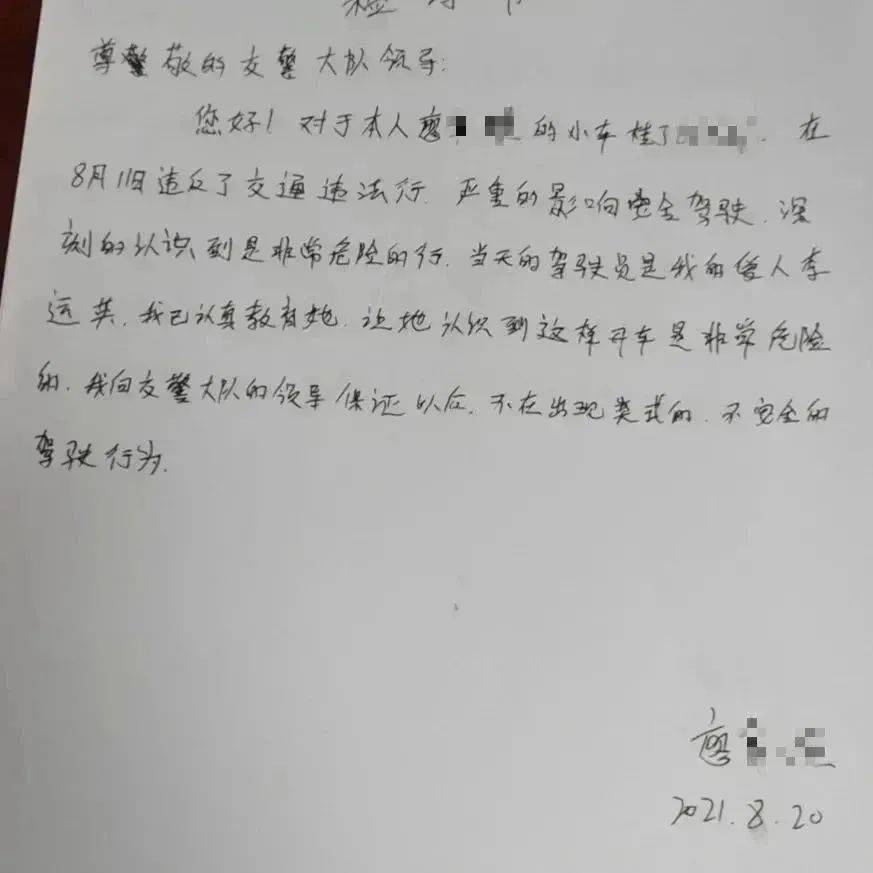 检讨书
尊敬的交警大队领导:
您好! 对于本人廖 的小车桂J 在
8月11日违反了交通违法行. 严重的影响安全驾驶. 深
刻的认识到是非常危险的行. 当天的驾驶员是我的爱人李
运英. 我已认真教育她. 让她认识到这样开车是非常危险
的. 我向交警大队的领导保证以后. 不在出现类式的. 不安全的
驾驶行为.
廖
2021.8.20